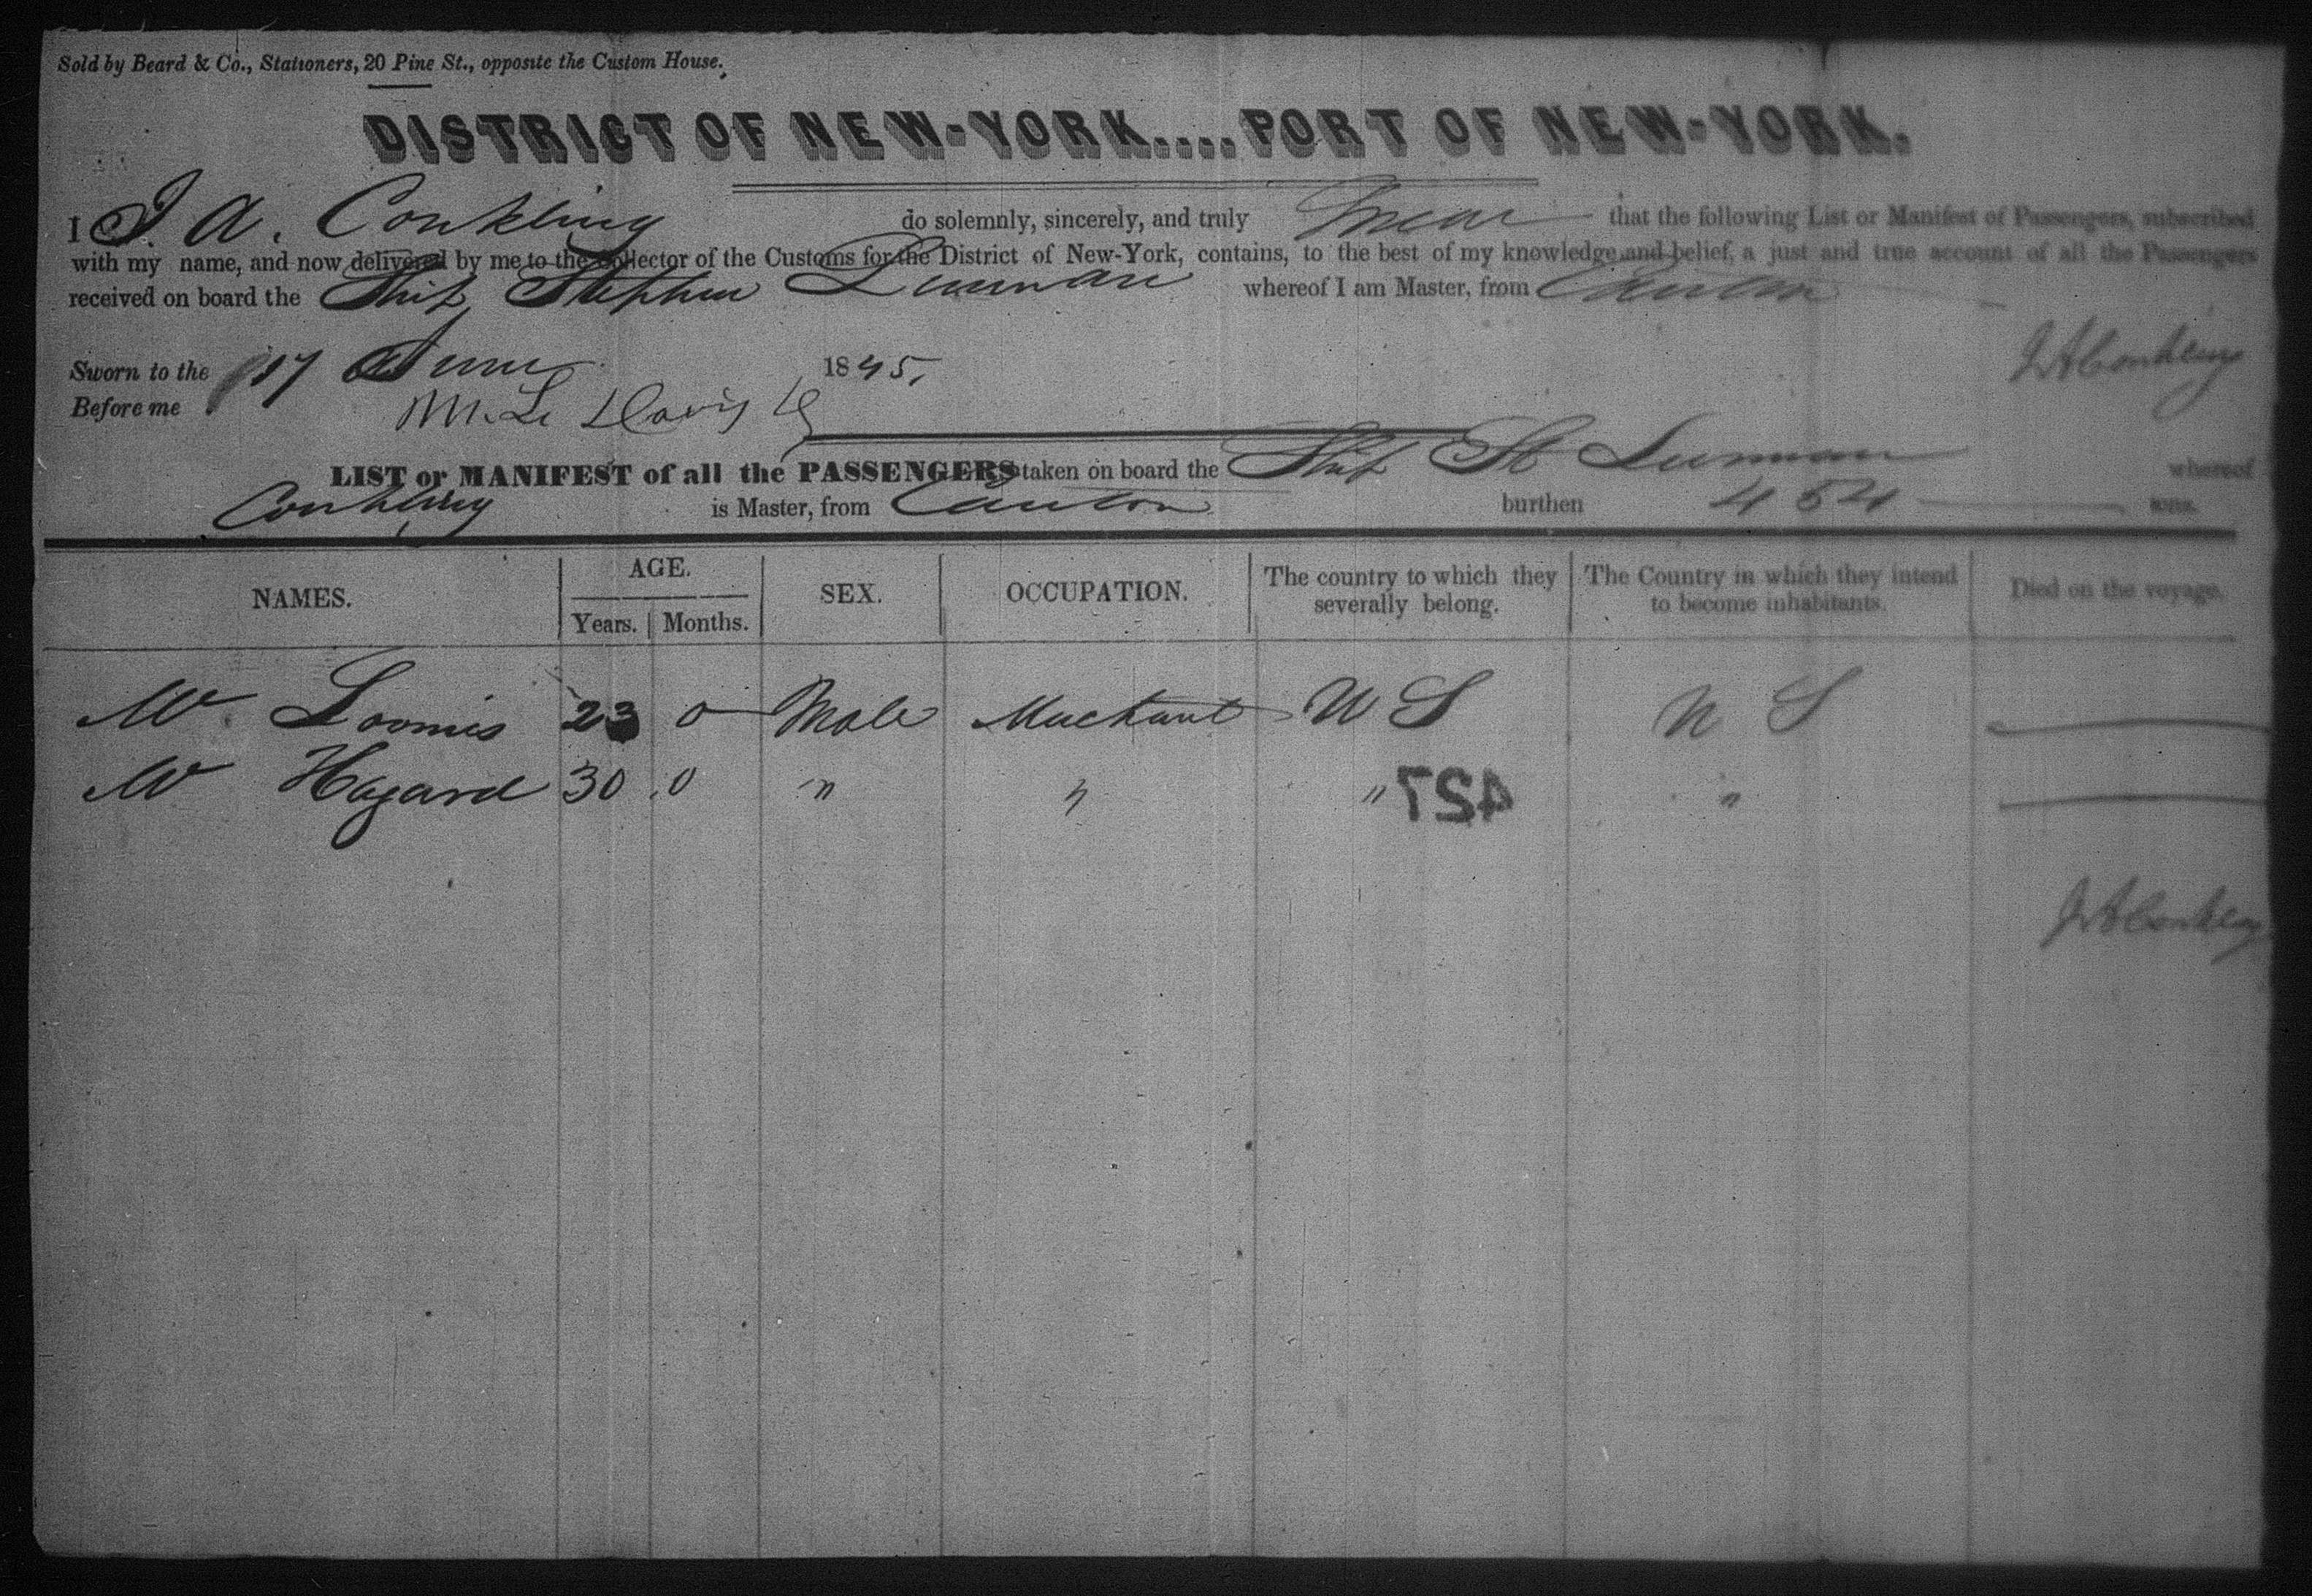 Sold by Beard & Co., Stationers, 20 Pine St., opposite the Custom House.
DISTRICT OF NEW-YORK....PORT OF NEW-YORK.
I J. A. Conkling do solemnly, sincerely, and truly swear that the following List or Manifest of Passengers, subscribed
with my name, and now delivered by me to the Collector of the Customs for the District of New-York, contains, to the best of my knowledge and belief, a just and true account of all the Passengers
received on board the Ship Stephen Lurman whereof I am Master, from Canton
J A Conkling
Sworn to the 17 June 1845.
Before me M. L. Davis
LIST or MANIFEST of all the PASSENGERS taken on board the Ship St Lurman whereof
Conkling is Master, from Canton burthen 454 tons.
NAMES. AGE. Years. Months. SEX. OCCUPATION. The country to which they severally belong. The Country in which they intend to become inhabitants. Died on the voyage.
W. Loomis 23 0 Male Merchant U S U S
W Hagard 30 0 " " " "
427
J A Conkling